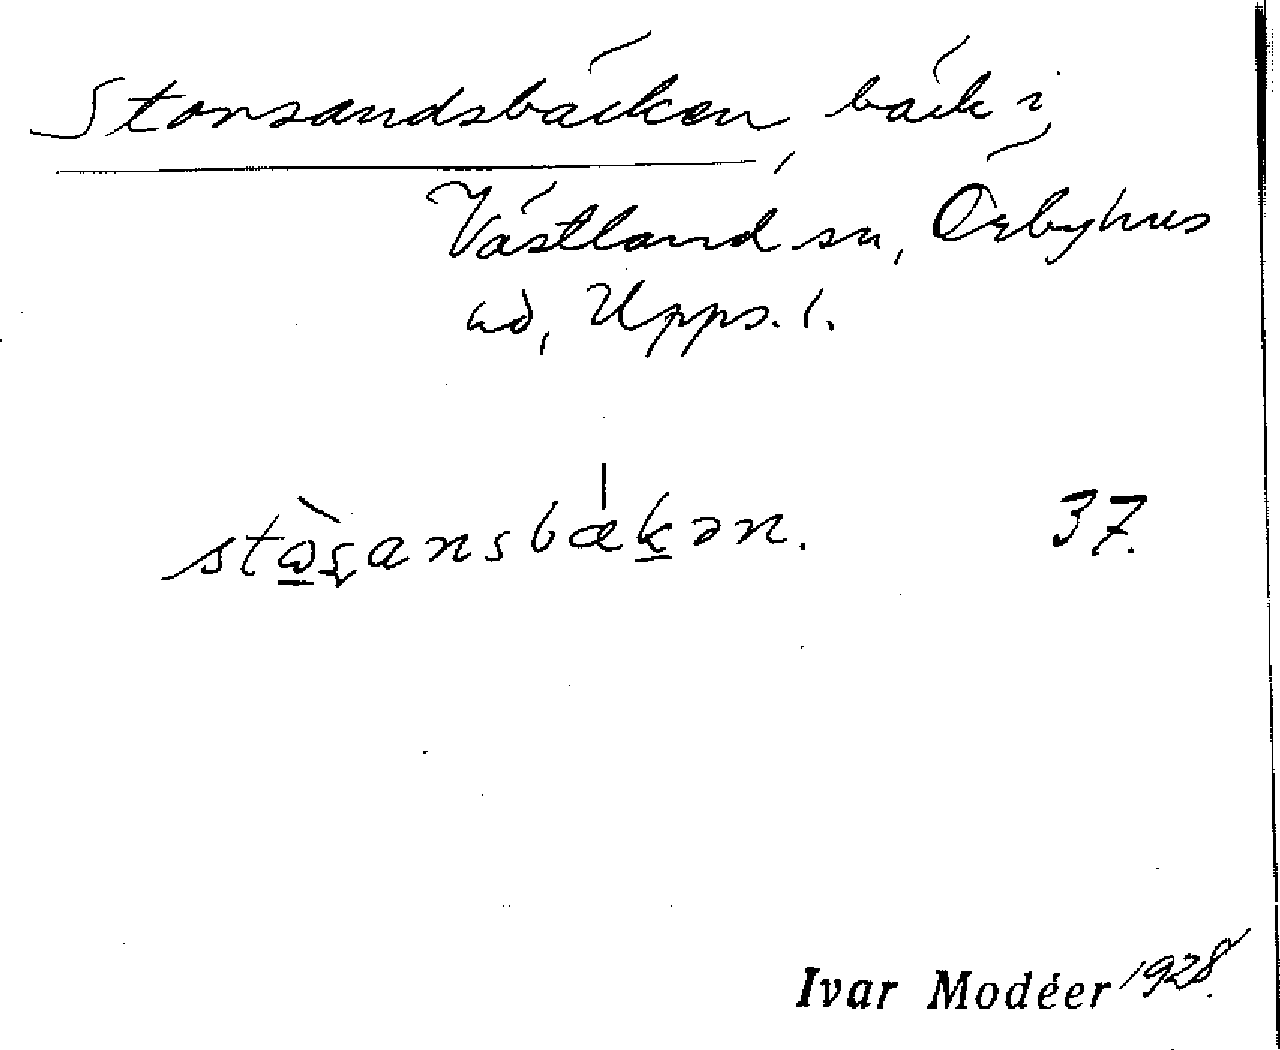 Storsandsbäcken, bäck i
Västland sn, Örbyhus
hd, Upps. l.
stɷ̀ʂansbækən. 37.
Ivar Modéer 1928.